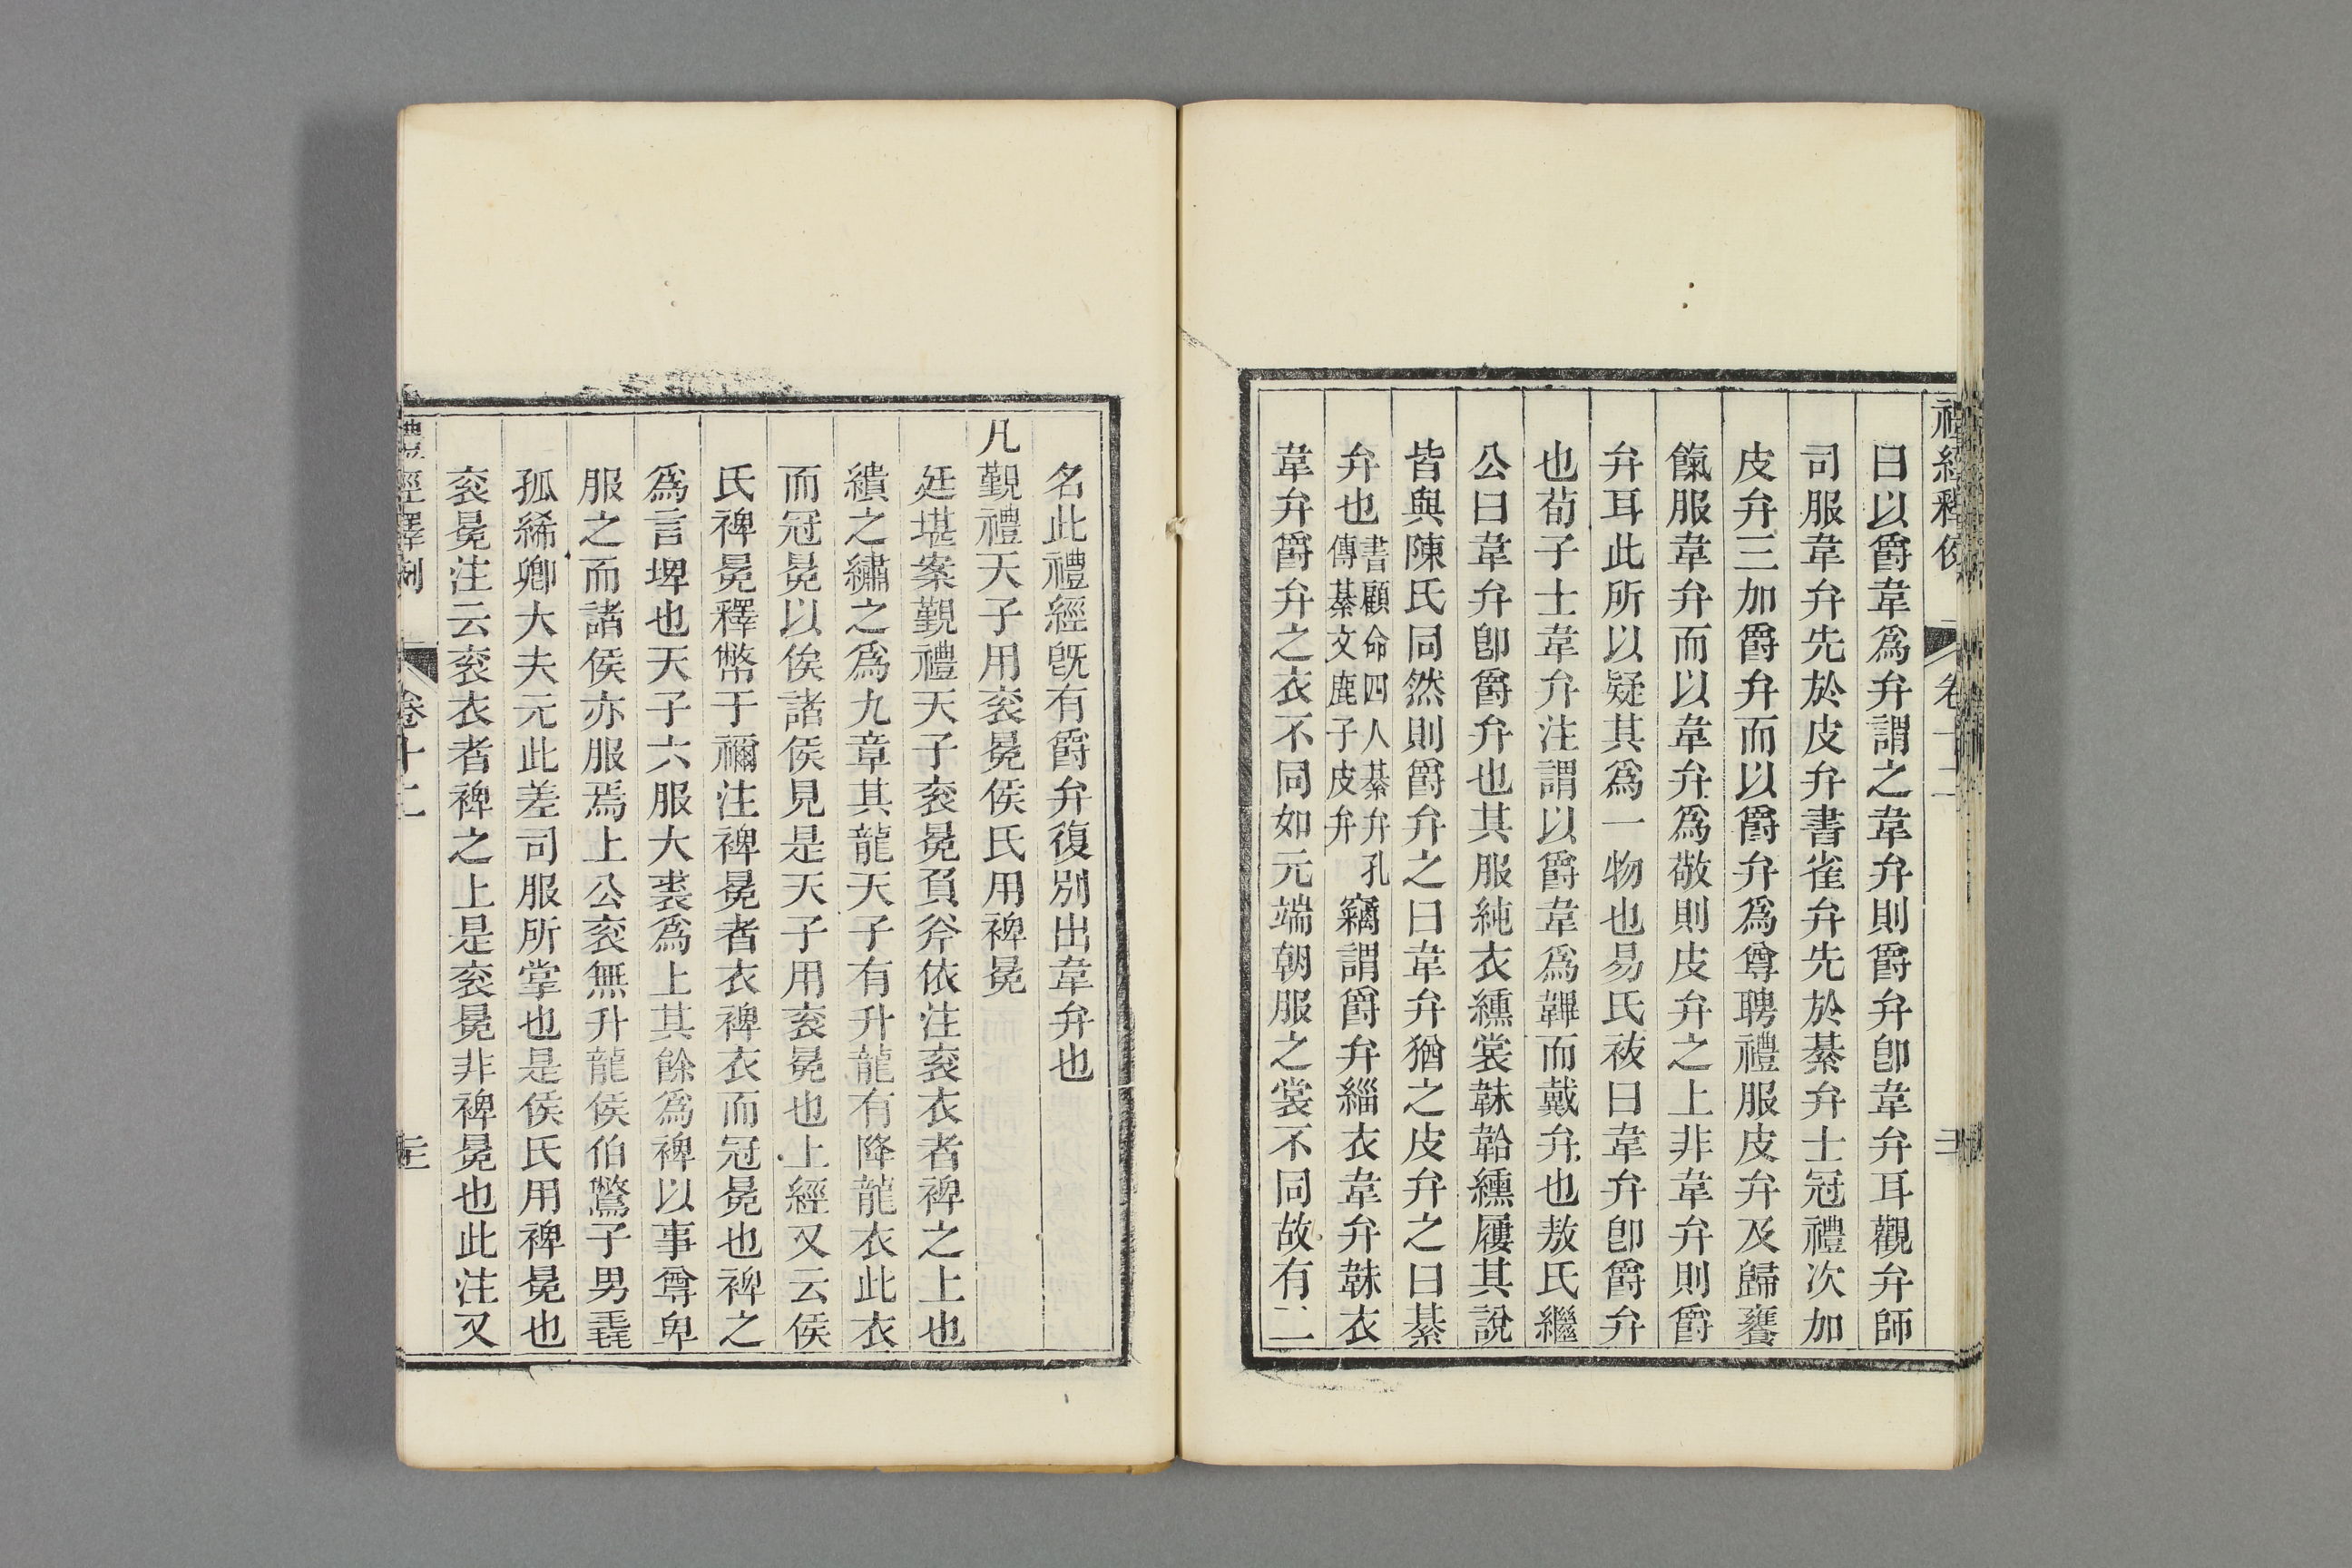 禮經釋例 卷十二
曰以爵韋爲弁謂之韋弁則爵弁卽韋弁耳觀弁師
司服韋弁先於皮弁書雀弁先於綦弁士冠禮次加
皮弁三加爵弁而以爵弁爲尊聘禮服皮弁及歸饔
餼服韋弁而以韋弁爲敬則皮弁之上非韋弁則爵
弁耳此所以疑其爲一物也易氏祓曰韋弁卽爵弁
也荀子士韋弁注謂以爵韋爲韠而戴弁也敖氏繼
公曰韋弁卽爵弁也其服純衣纁裳韎韐纁屨其說
皆與陳氏同然則爵弁之曰韋弁猶之皮弁之曰綦
弁也書顧命四人綦弁孔傳綦文鹿子皮弁竊謂爵弁緇衣韋弁韎衣
韋弁爵弁之衣不同如元端朝服之裳不同故有二
名此禮經旣有爵弁復別出韋弁也
凡覲禮天子用衮冕侯氏用裨冕
廷堪案覲禮天子衮冕負斧依注衮衣者裨之上也
繢之繡之爲九章其龍天子有升龍有降龍衣此衣
而冠冕以俟諸侯見是天子用衮冕也上經又云侯
氏裨冕釋幣于禰注裨冕者衣裨衣而冠冕也裨之
爲言埤也天子六服大裘爲上其餘爲裨以事尊卑
服之而諸侯亦服焉上公衮無升龍侯伯鷩子男毳
孤絺卿大夫元此差司服所掌也是侯氏用裨冕也
衮冕注云衮衣者裨之上是衮冕非裨冕也此注又
禮經釋例 卷十二